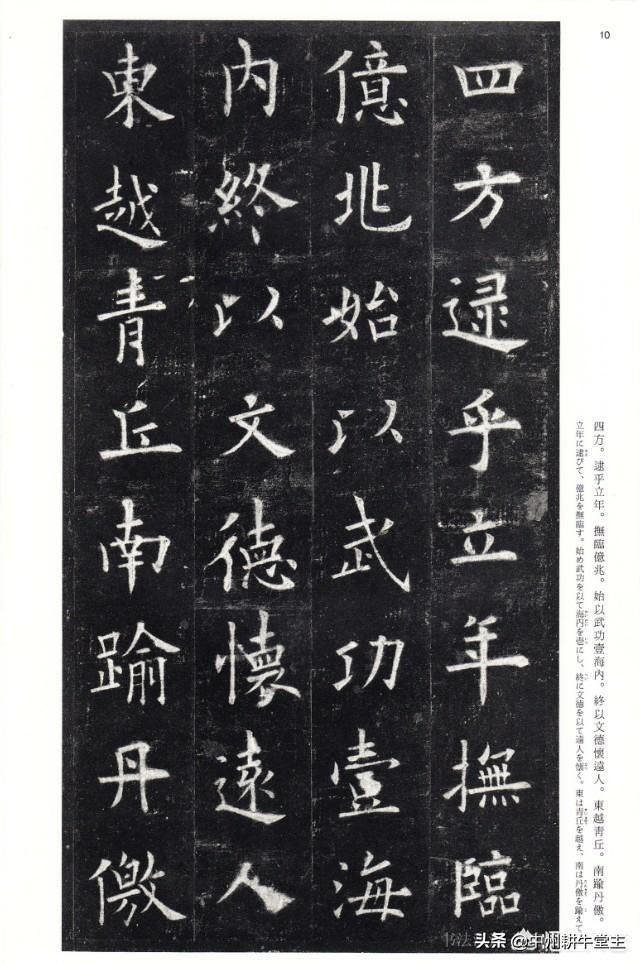 10
四方逯乎立年撫臨
億兆始以武功壹海
内終以文德懷遠人
東越青丘南踰丹儌
四方。逮乎立年。撫臨億兆。始以武功壹海內。終以文德懷遠人。東越靑丘。南踰丹儌。
立年に逮びて、億兆を撫臨す。始め武功を以て海内を壱にし、終に文徳を以て遠人を懐く。東は青丘を越え、南は丹儌を踰えて
头条 @中州耕牛堂主